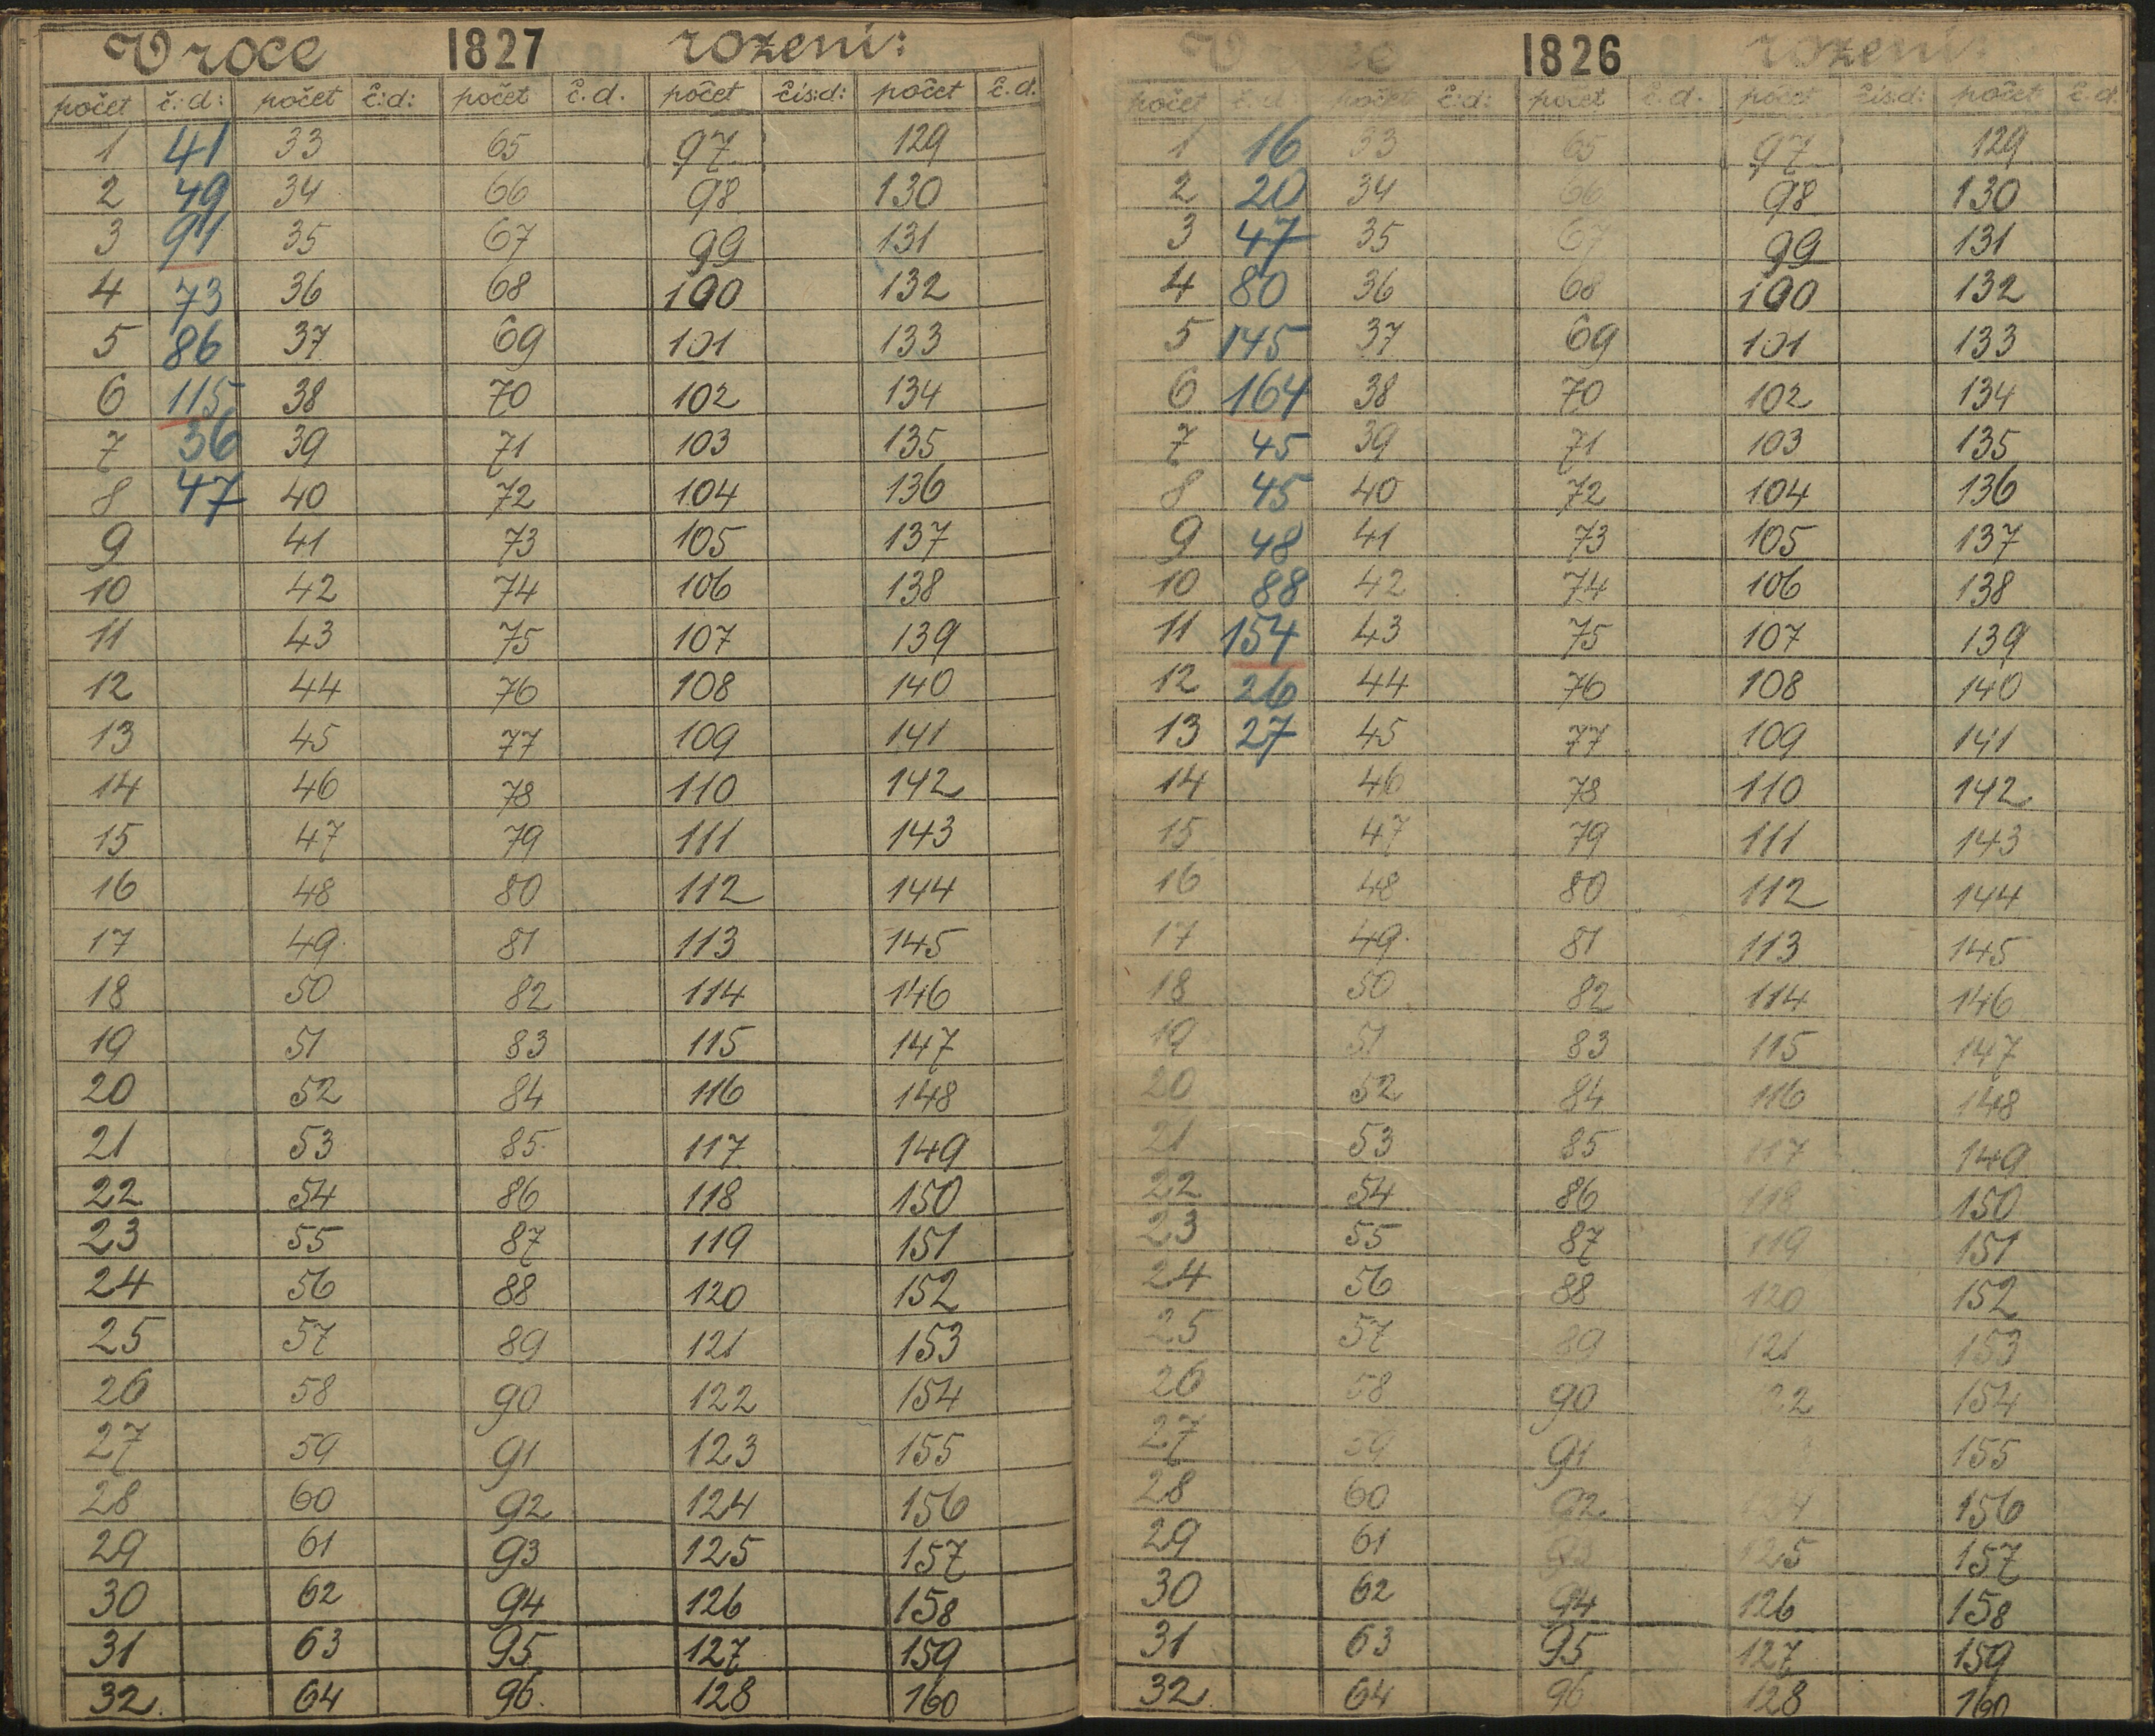 V roce 1827 rozeni:
počet č:d: počet č:d: počet č.d. počet čís:d: počet č.d.
1 41 33 65 97 129
2 49 34 66 98 130
3 91 35 67 99 131
4 73 36 68 100 132
5 86 37 69 101 133
6 115 38 70 102 134
7 36 39 71 103 135
8 47 40 72 104 136
9 41 73 105 137
10 42 74 106 138
11 43 75 107 139
12 44 76 108 140
13 45 77 109 141
14 46 78 110 142
15 47 79 111 143
16 48 80 112 144
17 49 81 113 145
18 50 82 114 146
19 51 83 115 147
20 52 84 116 148
21 53 85 117 149
22 54 86 118 150
23 55 87 119 151
24 56 88 120 152
25 57 89 121 153
26 58 90 122 154
27 59 91 123 155
28 60 92 124 156
29 61 93 125 157
30 62 94 126 158
31 63 95 127 159
32 64 96 128 160
V roce 1826 rozeni:
počet č:d: počet č:d: počet č.d. počet čís:d: počet č.d.
1 16 33 65 97 129
2 20 34 66 98 130
3 47 35 67 99 131
4 80 36 68 100 132
5 145 37 69 101 133
6 164 38 70 102 134
7 45 39 71 103 135
8 45 40 72 104 136
9 48 41 73 105 137
10 88 42 74 106 138
11 154 43 75 107 139
12 26 44 76 108 140
13 27 45 77 109 141
14 46 78 110 142
15 47 79 111 143
16 48 80 112 144
17 49 81 113 145
18 50 82 114 146
19 51 83 115 147
20 52 84 116 148
21 53 85 117 149
22 54 86 118 150
23 55 87 119 151
24 56 88 120 152
25 57 89 121 153
26 58 90 122 154
27 59 91 155
28 60 92 124 156
29 61 93 125 157
30 62 94 126 158
31 63 95 127 159
32 64 96 128 160